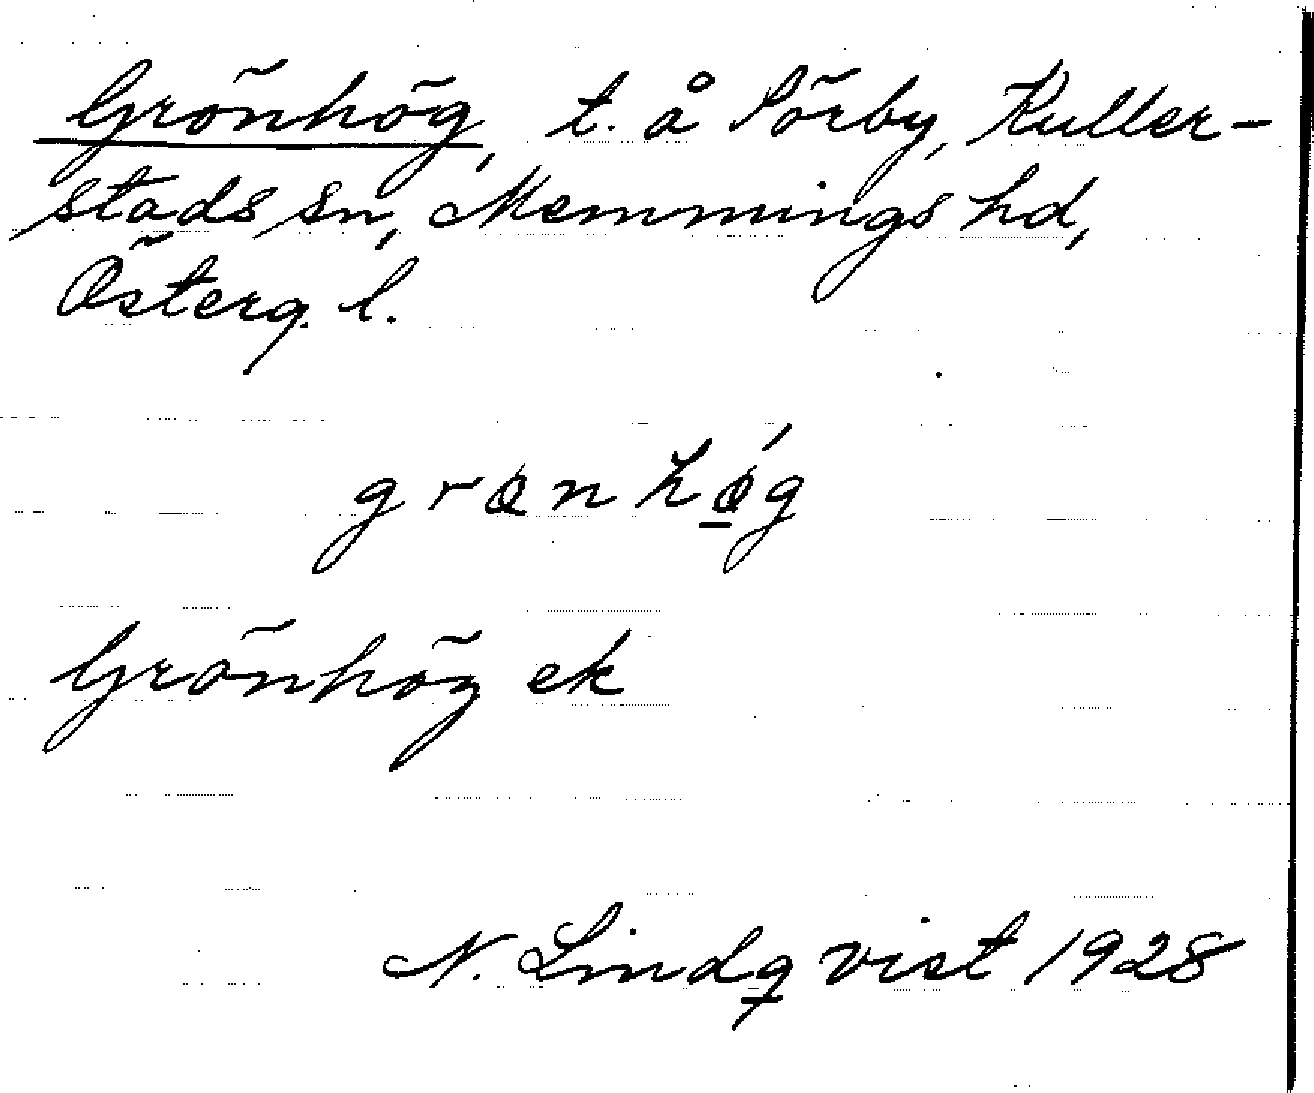 Grönhög, t. å Sörby, Kuller-
stads sn, Memmings hd,
Österg. l.
grønhǿg
Grönhög ek
N. Lindqvist 1928